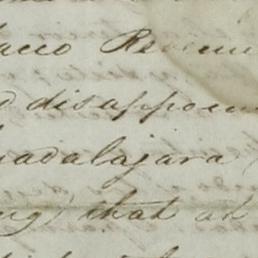 acco Revenu
d disappoin
uadalajara
ng) that an